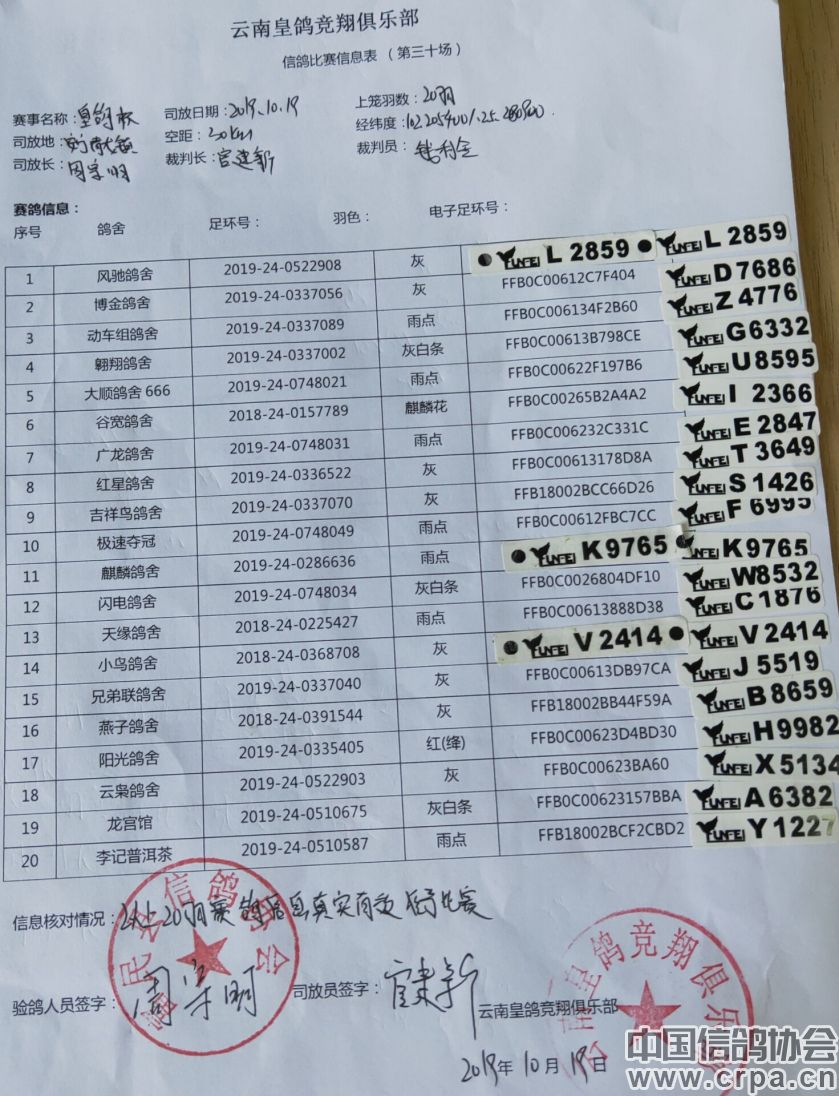 云南皇鸽竞翔俱乐部
信鸽比赛信息表（第三十场）
赛事名称：皇鸽杯 司放日期：2019.10.19 上笼羽数：20羽
司放地： 空距：30km 经纬度：
司放长：周宗明 裁判长：官建新 裁判员：
赛鸽信息：
序号 鸽舍 足环号： 羽色： 电子足环号：
1 风驰鸽舍 2019-24-0522908 灰 YUNFEI L 2859 YUNFEI L 2859
2 博金鸽舍 2019-24-0337056 灰 FFB0C00612C7F404 YUNFEI D7686
3 动车组鸽舍 2019-24-0337089 雨点 FFB0C006134F2B60 YUNFEI Z 4776
4 翱翔鸽舍 2019-24-0337002 灰白条 FFB0C00613B798CE YUNFEI G6332
5 大顺鸽舍 666 2019-24-0748021 雨点 FFB0C00622F197B6 YUNFEI U8595
6 谷宽鸽舍 2018-24-0157789 麒麟花 FFB0C00265B2A4A2 YUNFEI I 2366
7 广龙鸽舍 2019-24-0748031 雨点 FFB0C006232C331C YUNFEI E 2847
8 红星鸽舍 2019-24-0336522 灰 FFB0C00613178D8A YUNFEI T 3649
9 吉祥鸟鸽舍 2019-24-0337070 灰 FFB18002BCC66D26 YUNFEI S 1426
10 极速夺冠 2019-24-0748049 雨点 FFB0C00612FBC7CC YUNFEI F 6995
11 麒麟鸽舍 2019-24-0286636 雨点 YUNFEI K9765 YUNFEI K9765
12 闪电鸽舍 2019-24-0748034 灰白条 FFB0C0026804DF10 YUNFEI W8532
13 天缘鸽舍 2018-24-0225427 雨点 FFB0C00613888D38 YUNFEI C 1876
14 小鸟鸽舍 2018-24-0368708 灰 YUNFEI V 2414 YUNFEI V 2414
15 兄弟联鸽舍 2019-24-0337040 灰 FFB0C00613DB97CA YUNFEI J 5519
16 燕子鸽舍 2018-24-0391544 灰 FFB18002BB44F59A YUNFEI B 8659
17 阳光鸽舍 2019-24-0335405 红(绛) FFB0C00623D4BD30 YUNFEI H9982
18 云枭鸽舍 2019-24-0522903 灰 FFB0C00623BA60 YUNFEI X 5134
19 龙宫馆 2019-24-0510675 灰白条 FFB0C00623157BBA YUNFEI A 6382
20 李记普洱茶 2019-24-0510587 雨点 FFB18002BCF2CBD2 YUNFEI Y 1227
信息核对情况：以上20羽赛鸽信息真实有效 比赛
富民县信鸽协会
验鸽人员签字：周宗明 司放员签字：官建新 云南皇鸽竞翔俱乐部
云南皇鸽竞翔俱乐部
2019年10月19日
中国信鸽协会
www.crpa.cn